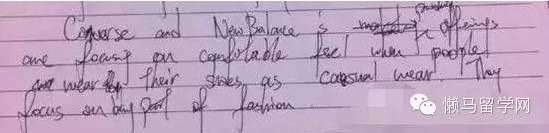 Converse and New Balance's offerings
are focusing on comfortable feel when people
wear their shoes as casual wear. They
focus on being part of fashion
懒马留学网